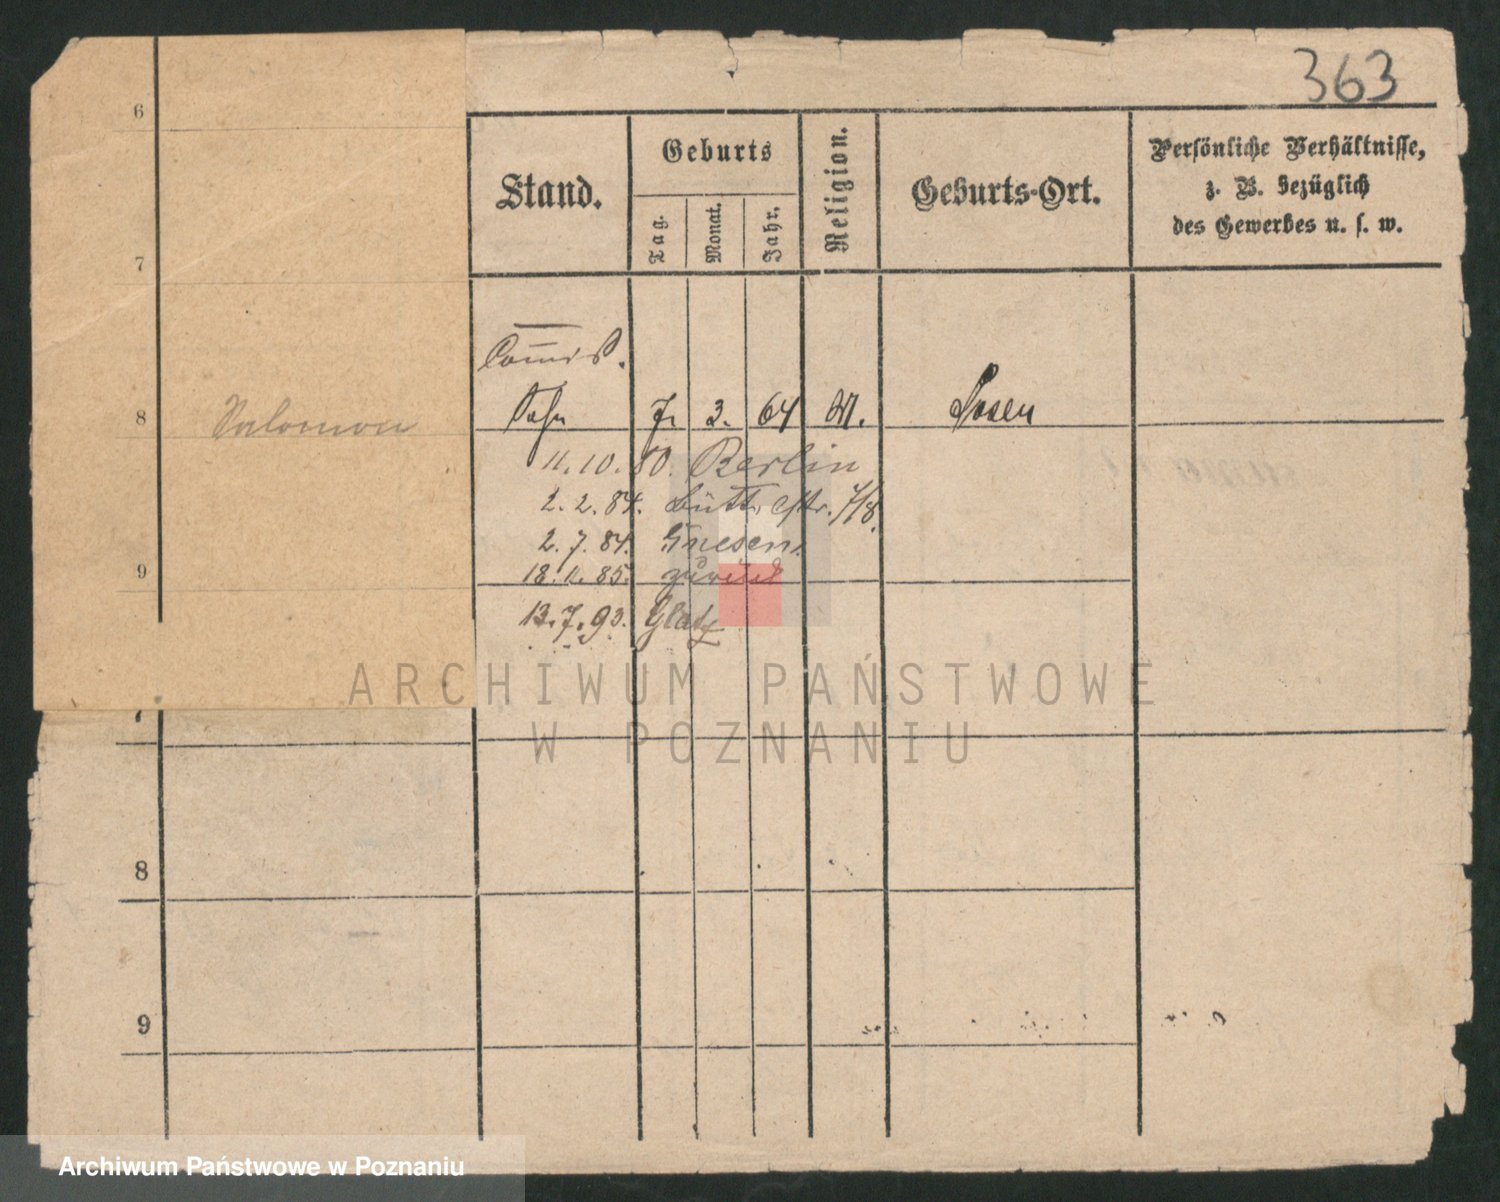 363
Stand.
Geburts
Tag.
Monat.
Jahr.
Religion.
Geburts-Ort.
Persönliche Verhältnisse,
z. B. bezüglich
des Gewerbes u. s. w.
6
7
Commis.
8 Salomon Sohn 7. 3. 64 M. Posen
11.10.80. Berlin
2.2.84. Bütt. Str. 7/8.
2.7.84. Gnesen.
9
18.11.85. zurück
13.7.93. Glatz
ARCHIWUM PAŃSTWOWE
W POZNANIU
7
8
9
Archiwum Państwowe w Poznaniu